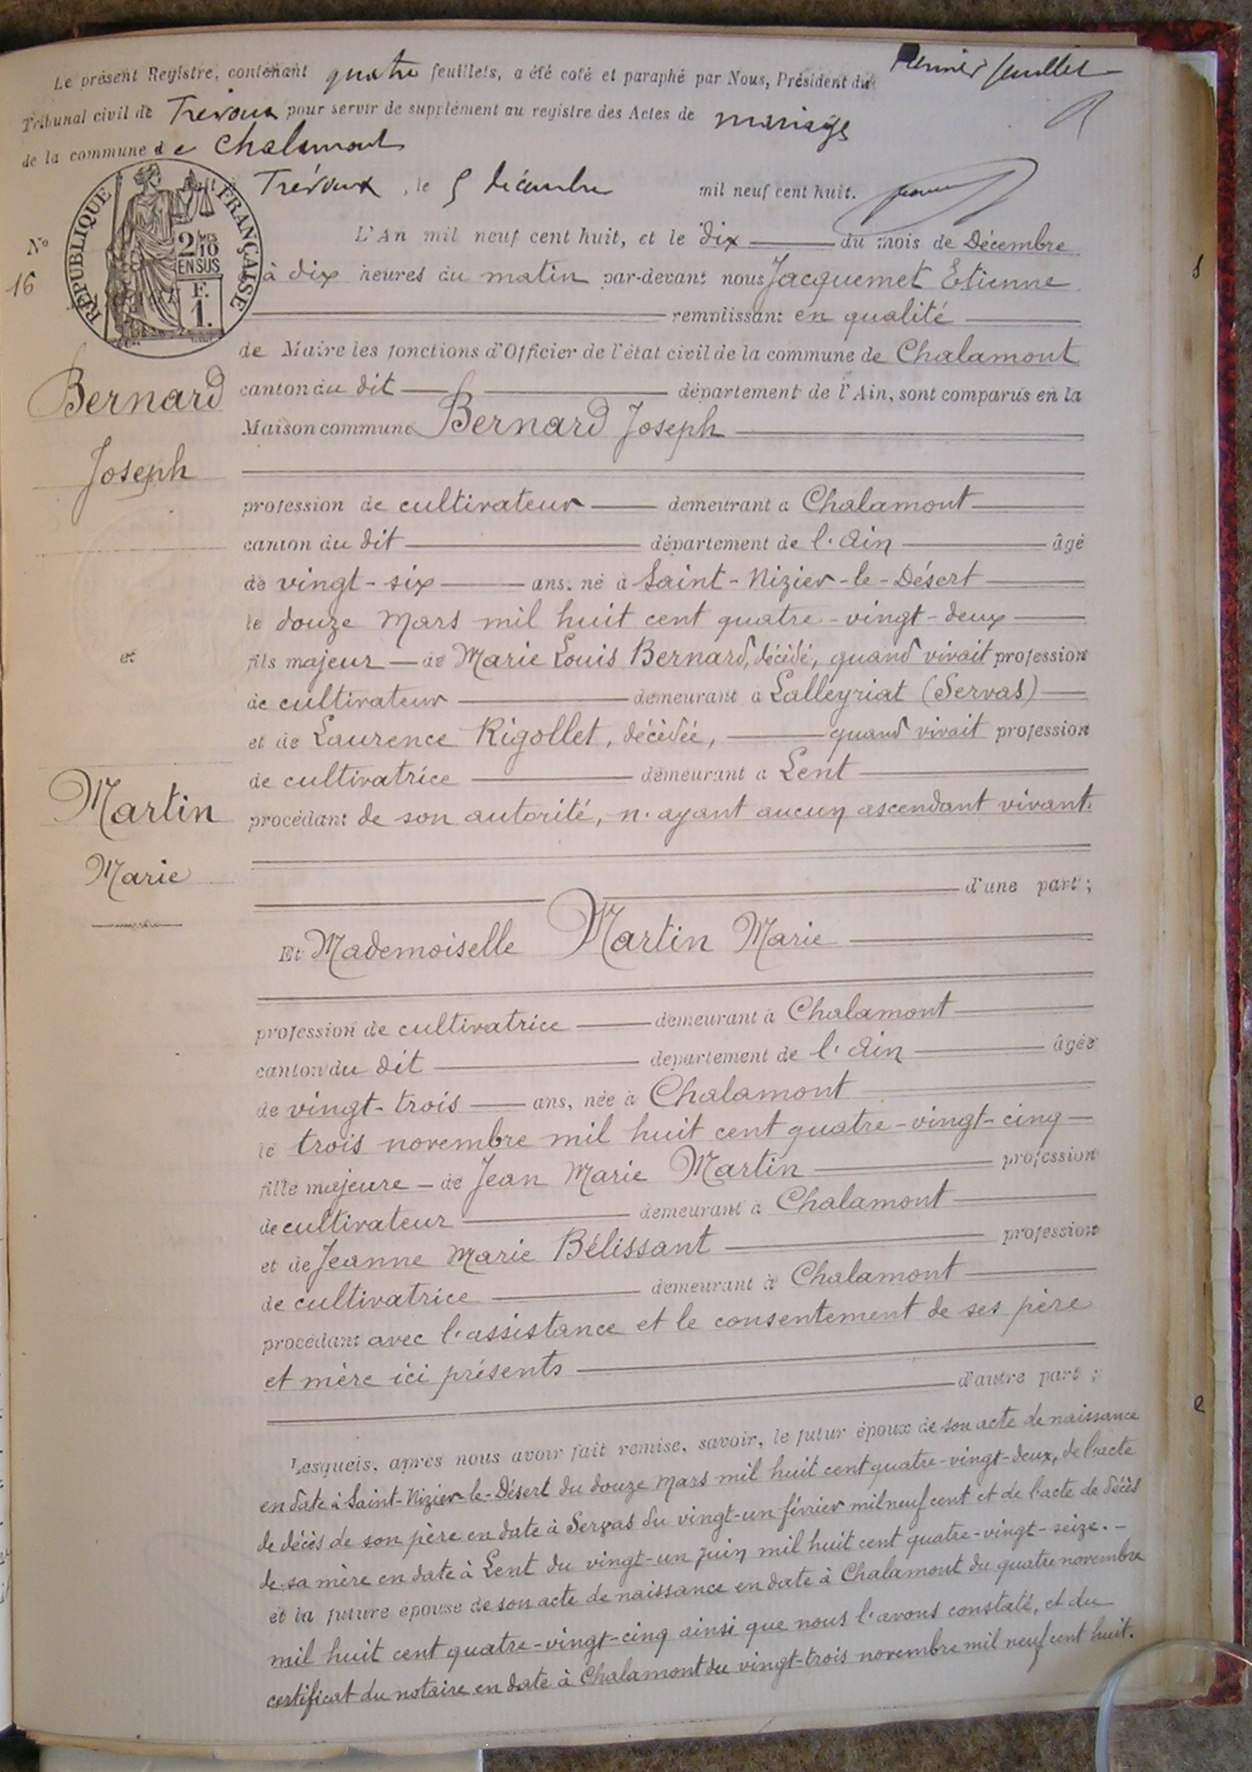 Premier feuillet
Le présent Registre, contenant quatre feuillets, a été coté et paraphé par Nous, Président du
Tribunal civil de Trévoux pour servir de supplément au registre des Actes de mariage
de la commune de Chalamont
Trévoux, le 5 décembre mil neuf cent huit.
RÉPUBLIQUE FRANÇAISE
2/10 EN SUS
F. 1.
N° 16
L'An mil neuf cent huit, et le dix du mois de Décembre
à dix heures du matin par-devant nous Jacquemet Etienne
remplissant en qualité
de Maire les fonctions d'Officier de l'état civil de la commune de Chalamont
canton du dit département de l'Ain, sont comparus en la
Maison commune Bernard Joseph
Bernard
Joseph
profession de cultivateur demeurant à Chalamont
canton du dit département de l'Ain âgé
de vingt-six ans, né à Saint-Nizier-le-Désert
le douze Mars mil huit cent quatre-vingt-deux
et
fils majeur de Marie Louis Bernard, décédé, quand vivait profession
de cultivateur demeurant à Lalleyriat (Servas)
et de Laurence Rigollet, décédée, quand vivait profession
de cultivatrice demeurant à Lent
procédant de son autorité, n'ayant aucun ascendant vivant.
Martin
Marie
d'une part;
Et Mademoiselle Martin Marie
profession de cultivatrice demeurant à Chalamont
canton du dit département de l'Ain âgée
de vingt-trois ans, née à Chalamont
le trois novembre mil huit cent quatre-vingt-cinq
fille majeure de Jean Marie Martin profession
de cultivateur demeurant à Chalamont
et de Jeanne Marie Bélissant profession
de cultivatrice demeurant à Chalamont
procédant avec l'assistance et le consentement de ses père
et mère ici présents
d'autre part;
Lesquels, après nous avoir fait remise, savoir, le futur époux de son acte de naissance
en date à Saint-Nizier-le-Désert du douze Mars mil huit cent quatre-vingt-deux, de l'acte
de décès de son père en date à Servas du vingt-un février mil neuf cent et de l'acte de décès
de sa mère en date à Lent du vingt-un juin mil huit cent quatre-vingt-seize.
et la future épouse de son acte de naissance en date à Chalamont du quatre novembre
mil huit cent quatre-vingt-cinq ainsi que nous l'avons constaté, et du
certificat du notaire en date à Chalamont du vingt-trois novembre mil neuf cent huit.